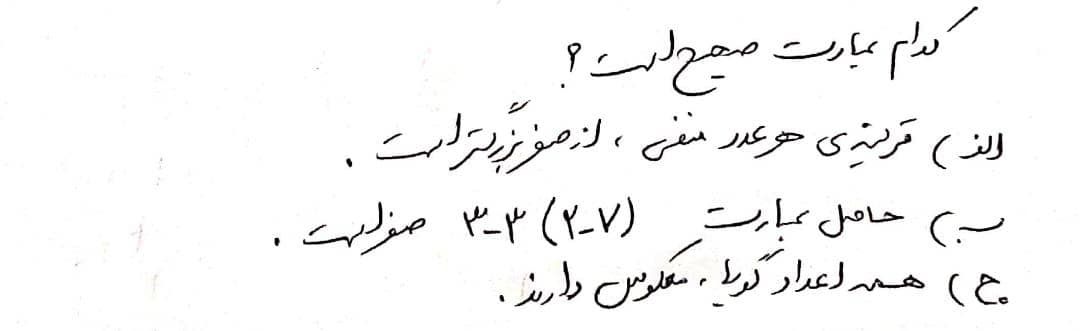 کدام عبارت صحیح است ؟
الف ) قرینه‌ی هر عدد منفی ، از صفر بزرگتر است .
ب ) حاصل عبارت ۳-۳ (۲-۷) صفر است .
ج ) همه اعداد گویا ، معکوس دارند .